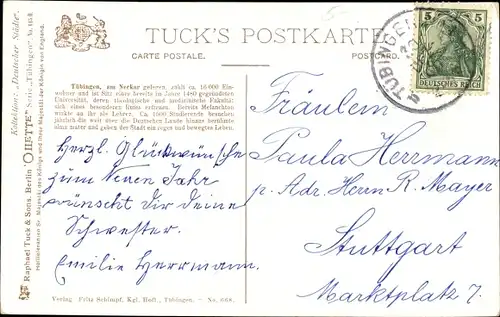 TUCK'S POSTKARTE
CARTE POSTALE.
POSTCARD.
TÜBINGEN
5 5
DEUTSCHES REICH
Kollektion: „Deutscher Städte“.
Raphael Tuck & Sons. Berlin „OILETTE“ Serie „Tübingen“
Hoflieferanten Sr. Majestät des Königs und Ihrer Majestät der Königin von England.
Tübingen, am Neckar gelegen, zählt ca. 16 000 Ein-
wohner und ist Sitz einer bereits im Jahre 1480 gegründeten
Universität, deren theologische und medizinische Fakultät
sich eines besonders Rufes erfreuen. Bereits Melanchton
wirkte an ihr als Lehrer. Ca. 1600 Studierende besuchen
jährlich die weit über die Deutschen Lande hinaus berühmte
alma mater und geben der Stadt ein reges und bewegtes Leben.
Herzl. Glückwünsche
zum Neuen Jahr
wünscht dir deine
Schwester.
Emilie Herrmann.
Fräulein
Paula Herrmann
p. Adr. Herrn R. Mayer
Stuttgart
Marktplatz 7.
Verlag Fritz Schimpf, Kgl. Hofl., Tübingen. – No. 688.